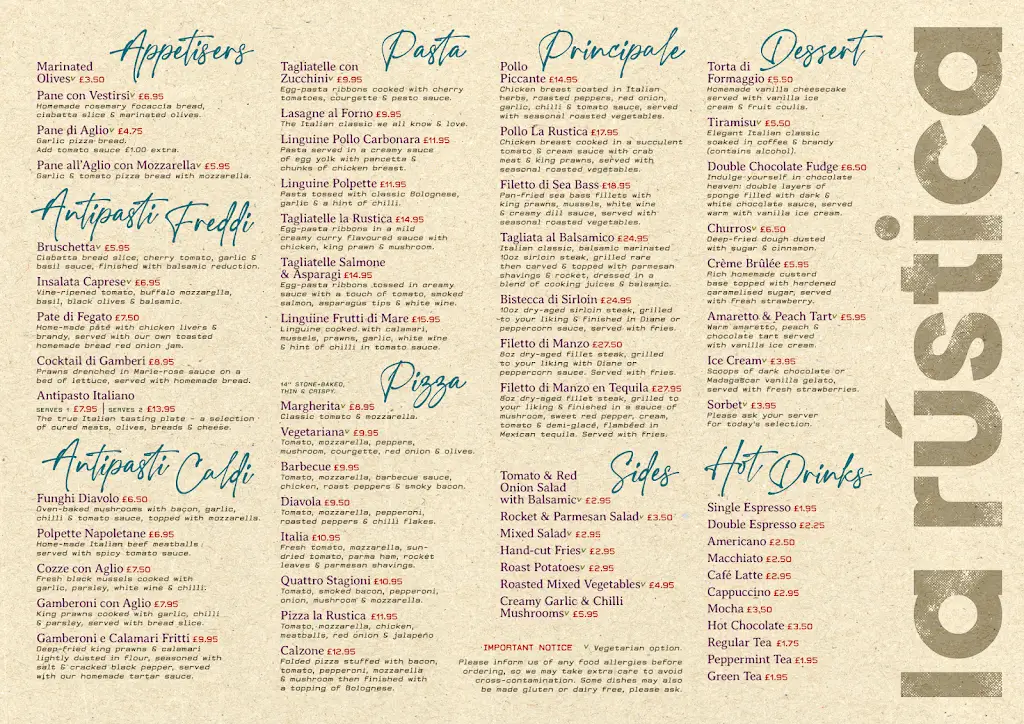 Appetisers
Marinated
Olivesv £3.50
Pane con Vestirsiv £6.95
Homemade rosemary focaccia bread,
ciabatta slice & marinated olives.
Pane di Agliov £4.75
Garlic pizza bread.
Add tomato sauce £1.00 extra.
Pane all'Aglio con Mozzarellav £5.95
Garlic & tomato pizza bread with mozzarella.
Antipasti Freddi
Bruschettav £5.95
Ciabatta bread slice, cherry tomato, garlic &
basil sauce, finished with balsamic reduction.
Insalata Caprese v £6.95
Vine-ripened tomato, buffalo mozzarella,
basil, black olives & balsamic.
Pate di Fegato £7.50
Home-made pâté with chicken livers &
brandy, served with our own toasted
homemade bread red onion jam.
Cocktail di Gamberi £8.95
Prawns drenched in Marie-rose sauce on a
bed of lettuce, served with homemade bread.
Antipasto Italiano
SERVES 1 £7.95 | SERVES 2 £13.95
The true Italian tasting plate - a selection
of cured meats, olives, breads & cheese.
Antipasti Caldi
Funghi Diavolo £6.50
Oven-baked mushrooms with bacon, garlic,
chilli & tomato sauce, topped with mozzarella.
Polpette Napoletane £6.95
Home-made Italian beef meatballs
served with spicy tomato sauce.
Cozze con Aglio £7.50
Fresh black mussels cooked with
garlic, parsley, white wine & chilli.
Gamberoni con Aglio £7.95
King prawns cooked with garlic, chilli
& parsley, served with bread slice.
Gamberoni e Calamari Fritti £9.95
Deep-fried king prawns & calamari
lightly dusted in flour, seasoned with
salt & cracked black pepper, served
with our homemade tartar sauce.
Pasta
Tagliatelle con
Zucchiniv £9.95
Egg-pasta ribbons cooked with cherry
tomatoes, courgette & pesto sauce.
Lasagne al Forno £9.95
The Italian classic we all know & love.
Linguine Pollo Carbonara £11.95
Pasta served in a creamy sauce
of egg yolk with pancetta &
chunks of chicken breast.
Linguine Polpette £11.95
Pasta tossed with classic Bolognese,
garlic & a hint of chilli.
Tagliatelle la Rustica £14.95
Egg-pasta ribbons in a mild
creamy curry flavoured sauce with
chicken, king prawn & mushroom.
Tagliatelle Salmone
& Asparagi £14.95
Egg-pasta ribbons tossed in creamy
sauce with a touch of tomato, smoked
salmon, asparagus tips & white wine.
Linguine Frutti di Mare £15.95
Linguine cooked with calamari,
mussels, prawns, garlic, white wine
& hint of chilli in tomato sauce.
Pizza
14" STONE-BAKED,
THIN & CRISPY.
Margheritav £8.95
Classic tomato & mozzarella.
Vegetarianav £9.95
Tomato, mozzarella, peppers,
mushroom, courgette, red onion & olives.
Barbecue £9.95
Tomato, mozzarella, barbecue sauce,
chicken, roast peppers & smoky bacon.
Diavola £9.50
Tomato, mozzarella, pepperoni,
roasted peppers & chilli flakes.
Italia £10.95
Fresh tomato, mozzarella, sun-
dried tomato, parma ham, rocket
leaves & parmesan shavings.
Quattro Stagioni £10.95
Tomato, smoked bacon, pepperoni,
onion, mushroom & mozzarella.
Pizza la Rustica £11.95
Tomato, mozzarella, chicken,
meatballs, red onion & jalapeño
Calzone £12.95
Folded pizza stuffed with bacon,
tomato, pepperoni, mozzarella
& mushroom then finished with
a topping of Bolognese.
Principale
Pollo
Piccante £14.95
Chicken breast coated in Italian
herbs, roasted peppers, red onion,
garlic, chilli & tomato sauce, served
with seasonal roasted vegetables.
Pollo La Rustica £17.95
Chicken breast cooked in a succulent
tomato & cream sauce with crab
meat & king prawns, served with
seasonal roasted vegetables.
Filetto di Sea Bass £18.95
Pan-fried sea bass fillets with
king prawns, mussels, white wine
& creamy dill sauce, served with
seasonal roasted vegetables.
Tagliata al Balsamico £24.95
Italian classic, balsamic marinated
10oz sirloin steak, grilled rare
then carved & topped with parmesan
shavings & rocket, dressed in a
blend of cooking juices & balsamic.
Bistecca di Sirloin £24.95
10oz dry-aged sirloin steak, grilled
to your liking & finished in Diane or
peppercorn sauce, served with fries.
Filetto di Manzo £27.50
8oz dry-aged fillet steak, grilled
to your liking with Diane or
peppercorn sauce. Served with fries.
Filetto di Manzo en Tequila £27.95
8oz dry-aged fillet steak, grilled to
your liking & finished in a sauce of
mushroom, sweet red pepper, cream,
tomato & demi-glacé, flambéed in
Mexican tequila. Served with fries.
Sides
Tomato & Red
Onion Salad
with Balsamicv £2.95
Rocket & Parmesan Saladv £3.50
Mixed Saladv £2.95
Hand-cut Friesv £2.95
Roast Potatoesv £2.95
Roasted Mixed Vegetablesv £4.95
Creamy Garlic & Chilli
Mushroomsv £5.95
IMPORTANT NOTICE v Vegetarian option.
Please inform us of any food allergies before
ordering, so we may take extra care to avoid
cross-contamination. Some dishes may also
be made gluten or dairy free, please ask.
Dessert
Torta di
Formaggio £5.50
Homemade vanilla cheesecake
served with vanilla ice
cream & fruit coulis.
Tiramisuv £5.50
Elegant Italian classic
soaked in coffee & brandy
(contains alcohol).
Double Chocolate Fudge £6.50
Indulge yourself in chocolate
heaven: double layers of
sponge filled with dark &
white chocolate sauce, served
warm with vanilla ice cream.
Churrosv £6.50
Deep-fried dough dusted
with sugar & cinnamon.
Crème Brûlée £5.95
Rich homemade custard
base topped with hardened
caramelised sugar, served
with fresh strawberry.
Amaretto & Peach Tartv £5.95
Warm amaretto, peach &
chocolate tart served
with vanilla ice cream.
Ice Creamv £3.95
Scoops of dark chocolate or
Madagatcar vanilla gelato,
served with fresh strawberries.
Sorbetv £3.95
Please ask your server
for today's selection.
Hot Drinks
Single Espresso £1.95
Double Espresso £2.25
Americano £2.50
Macchiato £2.50
Café Latte £2.95
Cappuccino £2.95
Mocha £3.50
Hot Chocolate £3.50
Regular Tea £1.75
Peppermint Tea £1.95
Green Tea £1.95
la rústica